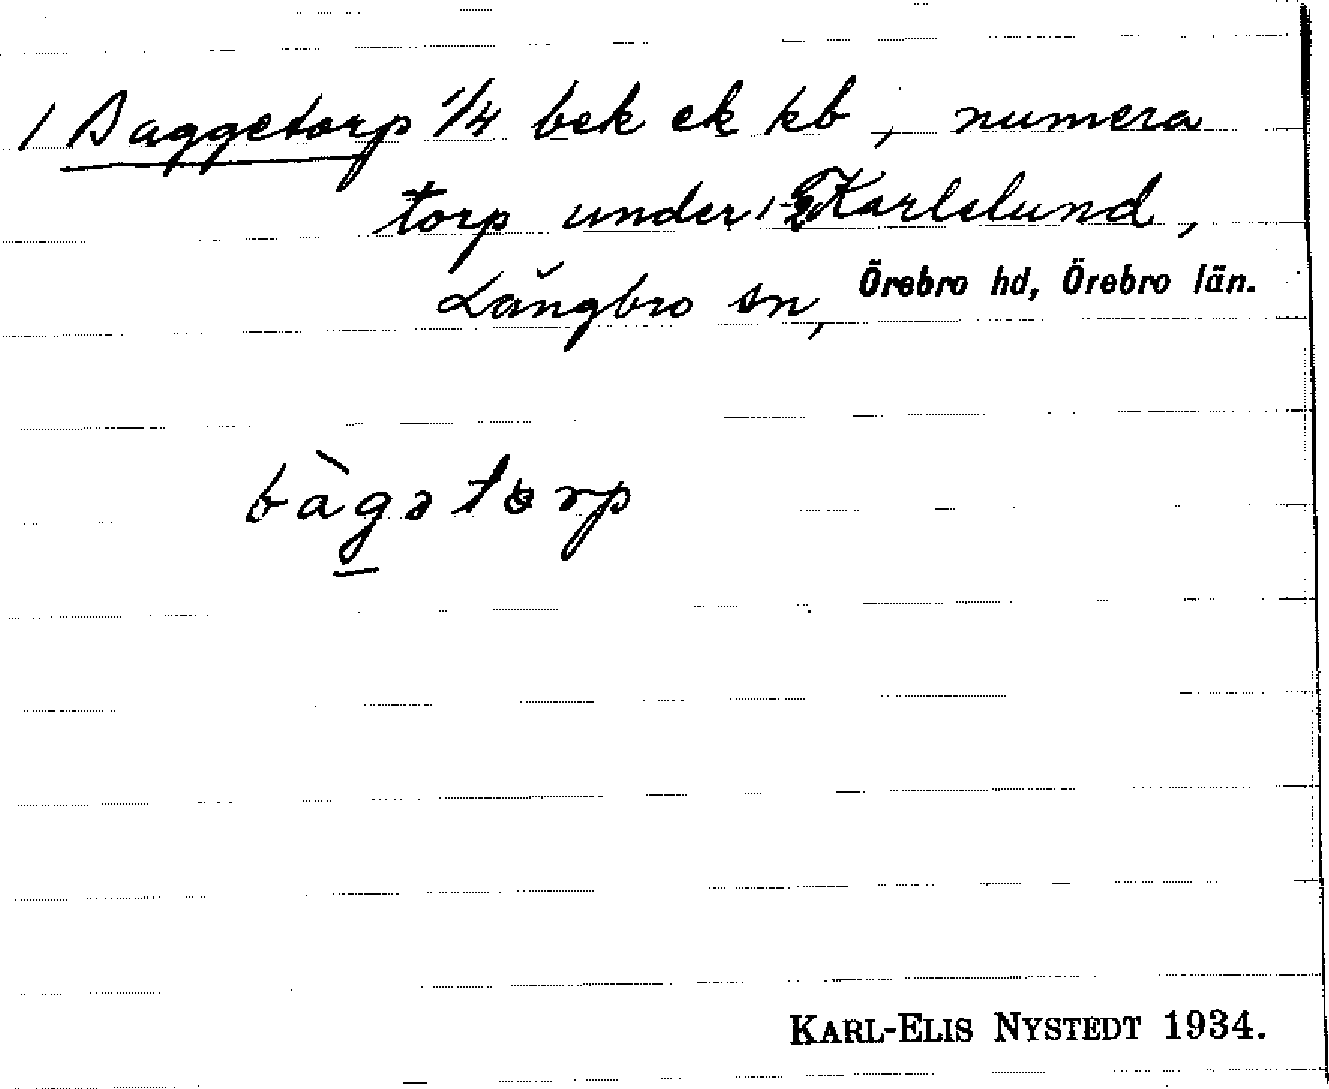 1 Baggetorp 1/4 bek ek kb, numera
torp under Karlslund,
Långbro sn, Örebro hd, Örebro län.
bàgətorp
KARL-ELIS NYSTEDT 1934.